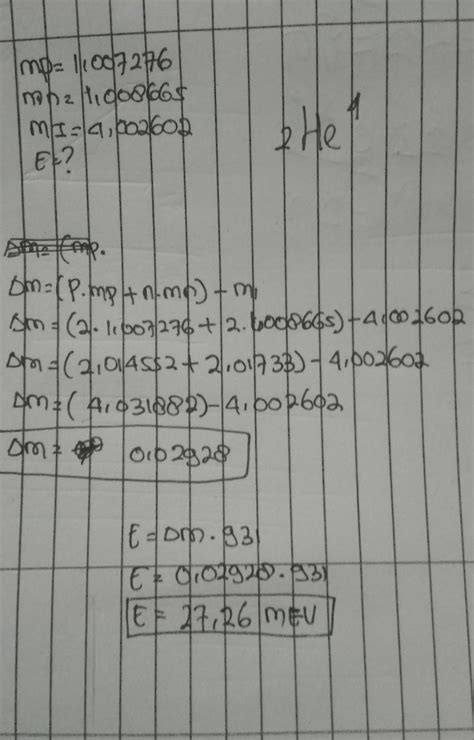 mp= 1,007276
mn= 1,008665
mI= 4,002602
E=?
₂He⁴
Δm= (mp.
Δm=(P.mp+n.mn)-mı
Δm=(2.1,007276+2.1,008665)-4,002602
Δm=(2,014552+2,01733)-4,002602
Δm=(4,031882)-4,002602
Δm= 0,02928
E=Δm.931
E= 0,02928.931
E= 27,26 MEV